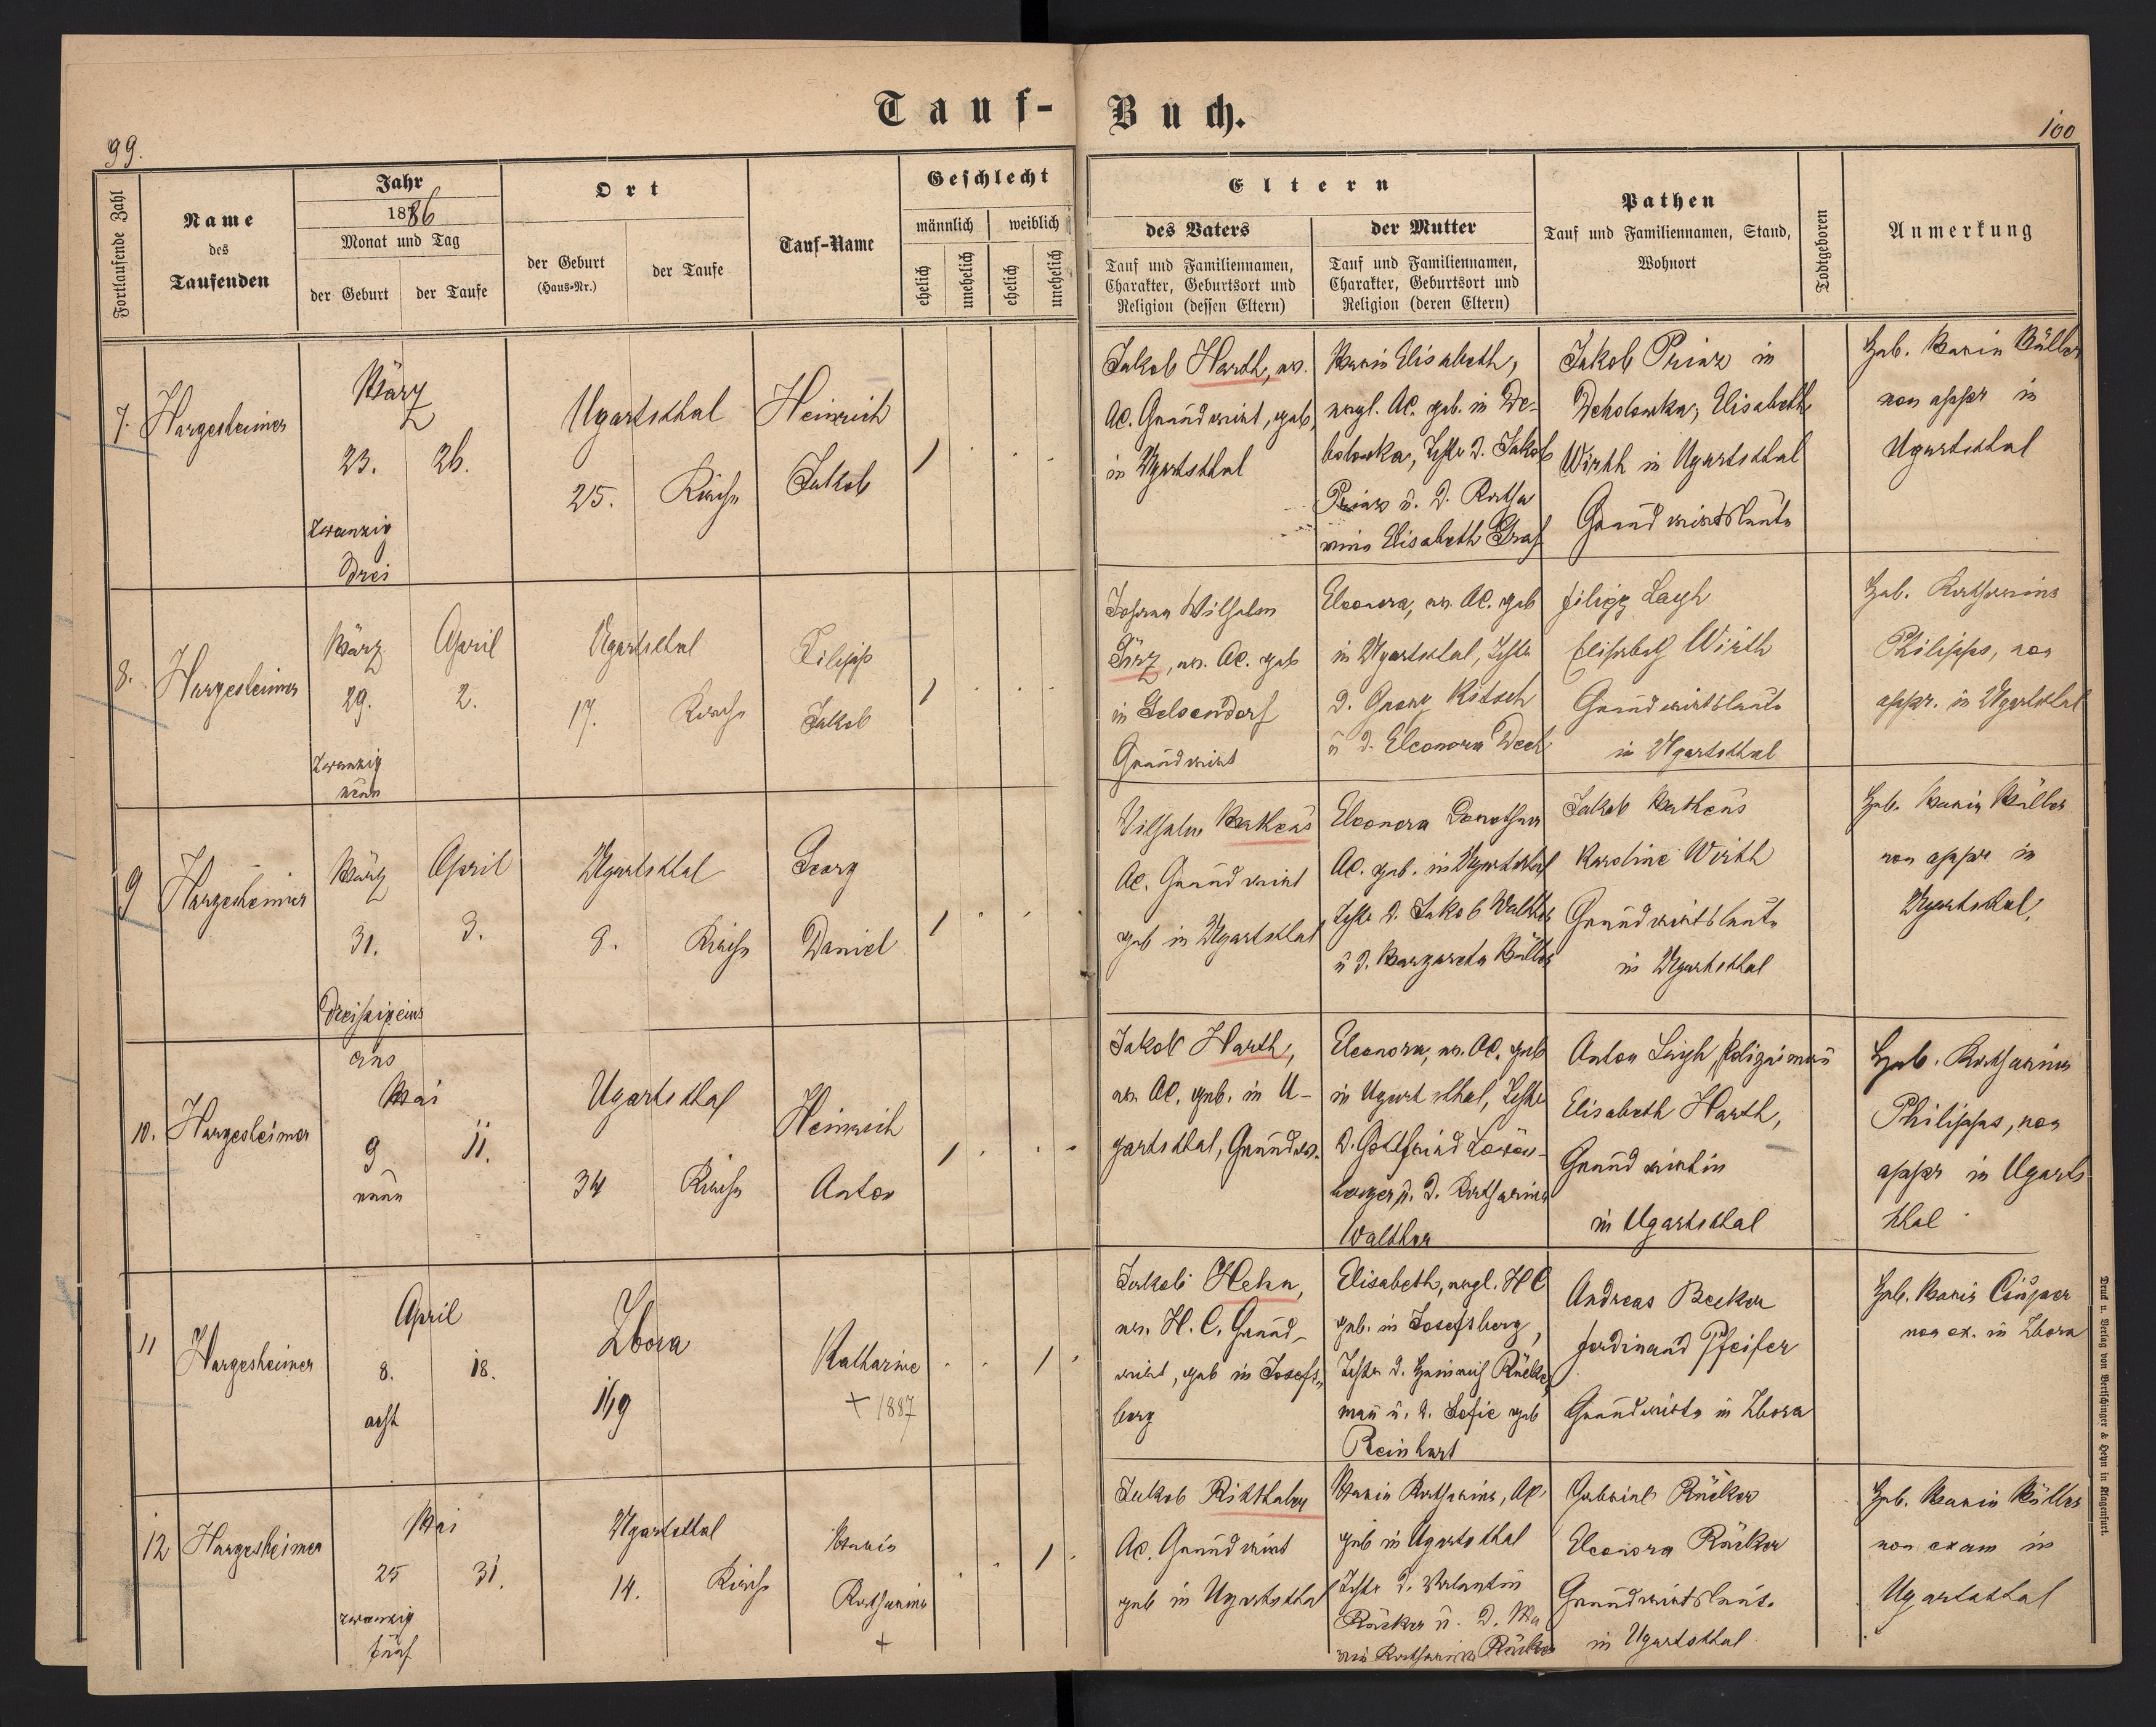 Tauf-
Buch.
99.
100
Fortlaufende Zahl
Name
des
Taufenden
Jahr
1886
Monat und Tag
der Geburt
der Taufe
Ort
der Geburt
(Haus-Nr.)
der Taufe
Tauf-Name
Geschlecht
männlich
weiblich
ehelich
unehelich
ehelich
unehelich
Eltern
des Vaters
Tauf und Familiennamen,
Charakter, Geburtsort und
Religion (dessen Eltern)
der Mutter
Tauf und Familiennamen,
Charakter, Geburtsort und
Religion (deren Eltern)
Pathen
Tauf und Familiennamen, Stand,
Wohnort
Todtgeboren
Anmerkung
7.
Hargesheimer
März
23.
26.
zwanzig
drei
Ugartsthal
25.
Kirche
Heinrich
Jakob
Jakob Harth, ev.
AC. Grundwirt, geb.
in Ugartsthal
Maria Elisabeth,
evgl. AC. geb. in De-
bolowka, Tchtr d. Jakob
Prinz u. d. Katha
rina Elisabeth Graf
Jakob Prinz in
Debolowka, Elisabeth
Wirth in Ugartsthal
Grundwirtsleute
Heb. Maria Müller
non appr in
Ugartsthal
8.
Hargesheimer
März
April
29.
2.
zwanzig
neun
Ugartsthal
17.
Kirche
Filipp
Jakob
Johann Wilhelm
Görz, ev. AC. geb
in Gelsendorf
Grundwirt
Eleonora, ev. AC. geb
in Ugartsthal, Tchtr
d. Georg Kitsch
u d. Eleonora Dech
Filipp
Elisabeth Wirth
Grundwirtsleute
in Ugartsthal
Heb. Katharina
Philipps, non
appr. in Ugartsthal
9
Hargesheimer
März
April
31.
3.
dreissigeins
Ugartsthal
8.
Kirche
Georg
Daniel
Wilhelm Matheus
AC. Grundwirt
geb in Ugartsthal
Eleonora Dorothea
AC. geb. in Ugartsthal
Tchtr d. Jakob Walther
u d. Margareta Müller
Jakob Matheus
Karoline Wirth
Grundwirtsleute
in Ugartsthal
Heb. Maria Müller
non appr in
Ugartsthal.
10.
Hargesheimer
Mai
9
11.
neun
Ugartsthal
34
Kirche
Heinrich
Anton
Jakob Harth,
ev. AC. geb. in U-
gartsthal, Grundw.
Eleonora, ev. AC. geb
in Ugartsthal, Tchtr
d. Gottfried Löwen-
berger u. d. Katharina
Walther
Anton Polizeimann
Elisabeth Harth,
Grundwirtin
in Ugartsthal
Heb. Katharina
Philipps, non
appr in Ugarts
thal
11
Hargesheimer
April
8.
18.
acht
Zbora
119
Katharine
+ 1887
Jakob Hehn,
ev. H. C. Grund-
wirt, geb in Josefs-
berg
Elisabeth, evgl. HC
geb. in Josefsberg,
Tchtr d. Heinrich Rücke
mann u. d. Sofie geb
Reinhart
Andreas Becker
Ferdinand Pfeifer
Grundwirte in Zbora
Heb. Maria
non ex. in Zbora
12
Hargesheimer
Mai
25
31.
zwanzig
fünf
Ugartsthal
14.
Kirche
Maria
Katharina
+
Jakob Ritthaler
AC. Grundwirt
geb in Ugartsthal
Maria Katharina, AC.
geb in Ugartsthal
Tchtr d. Valentin
Räcker u. d. Ma
ria Katharina Räcker
Gabriel Räcker
Eleonora Räcker
Grundwirtsleute
in Ugartsthal
Heb. Maria Müller
non exam in
Ugartsthal
Druck u. Verlag von Bertschinger & Heyn in Klagenfurt.